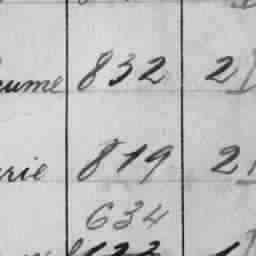 ume 832 2
rie 819 2
634